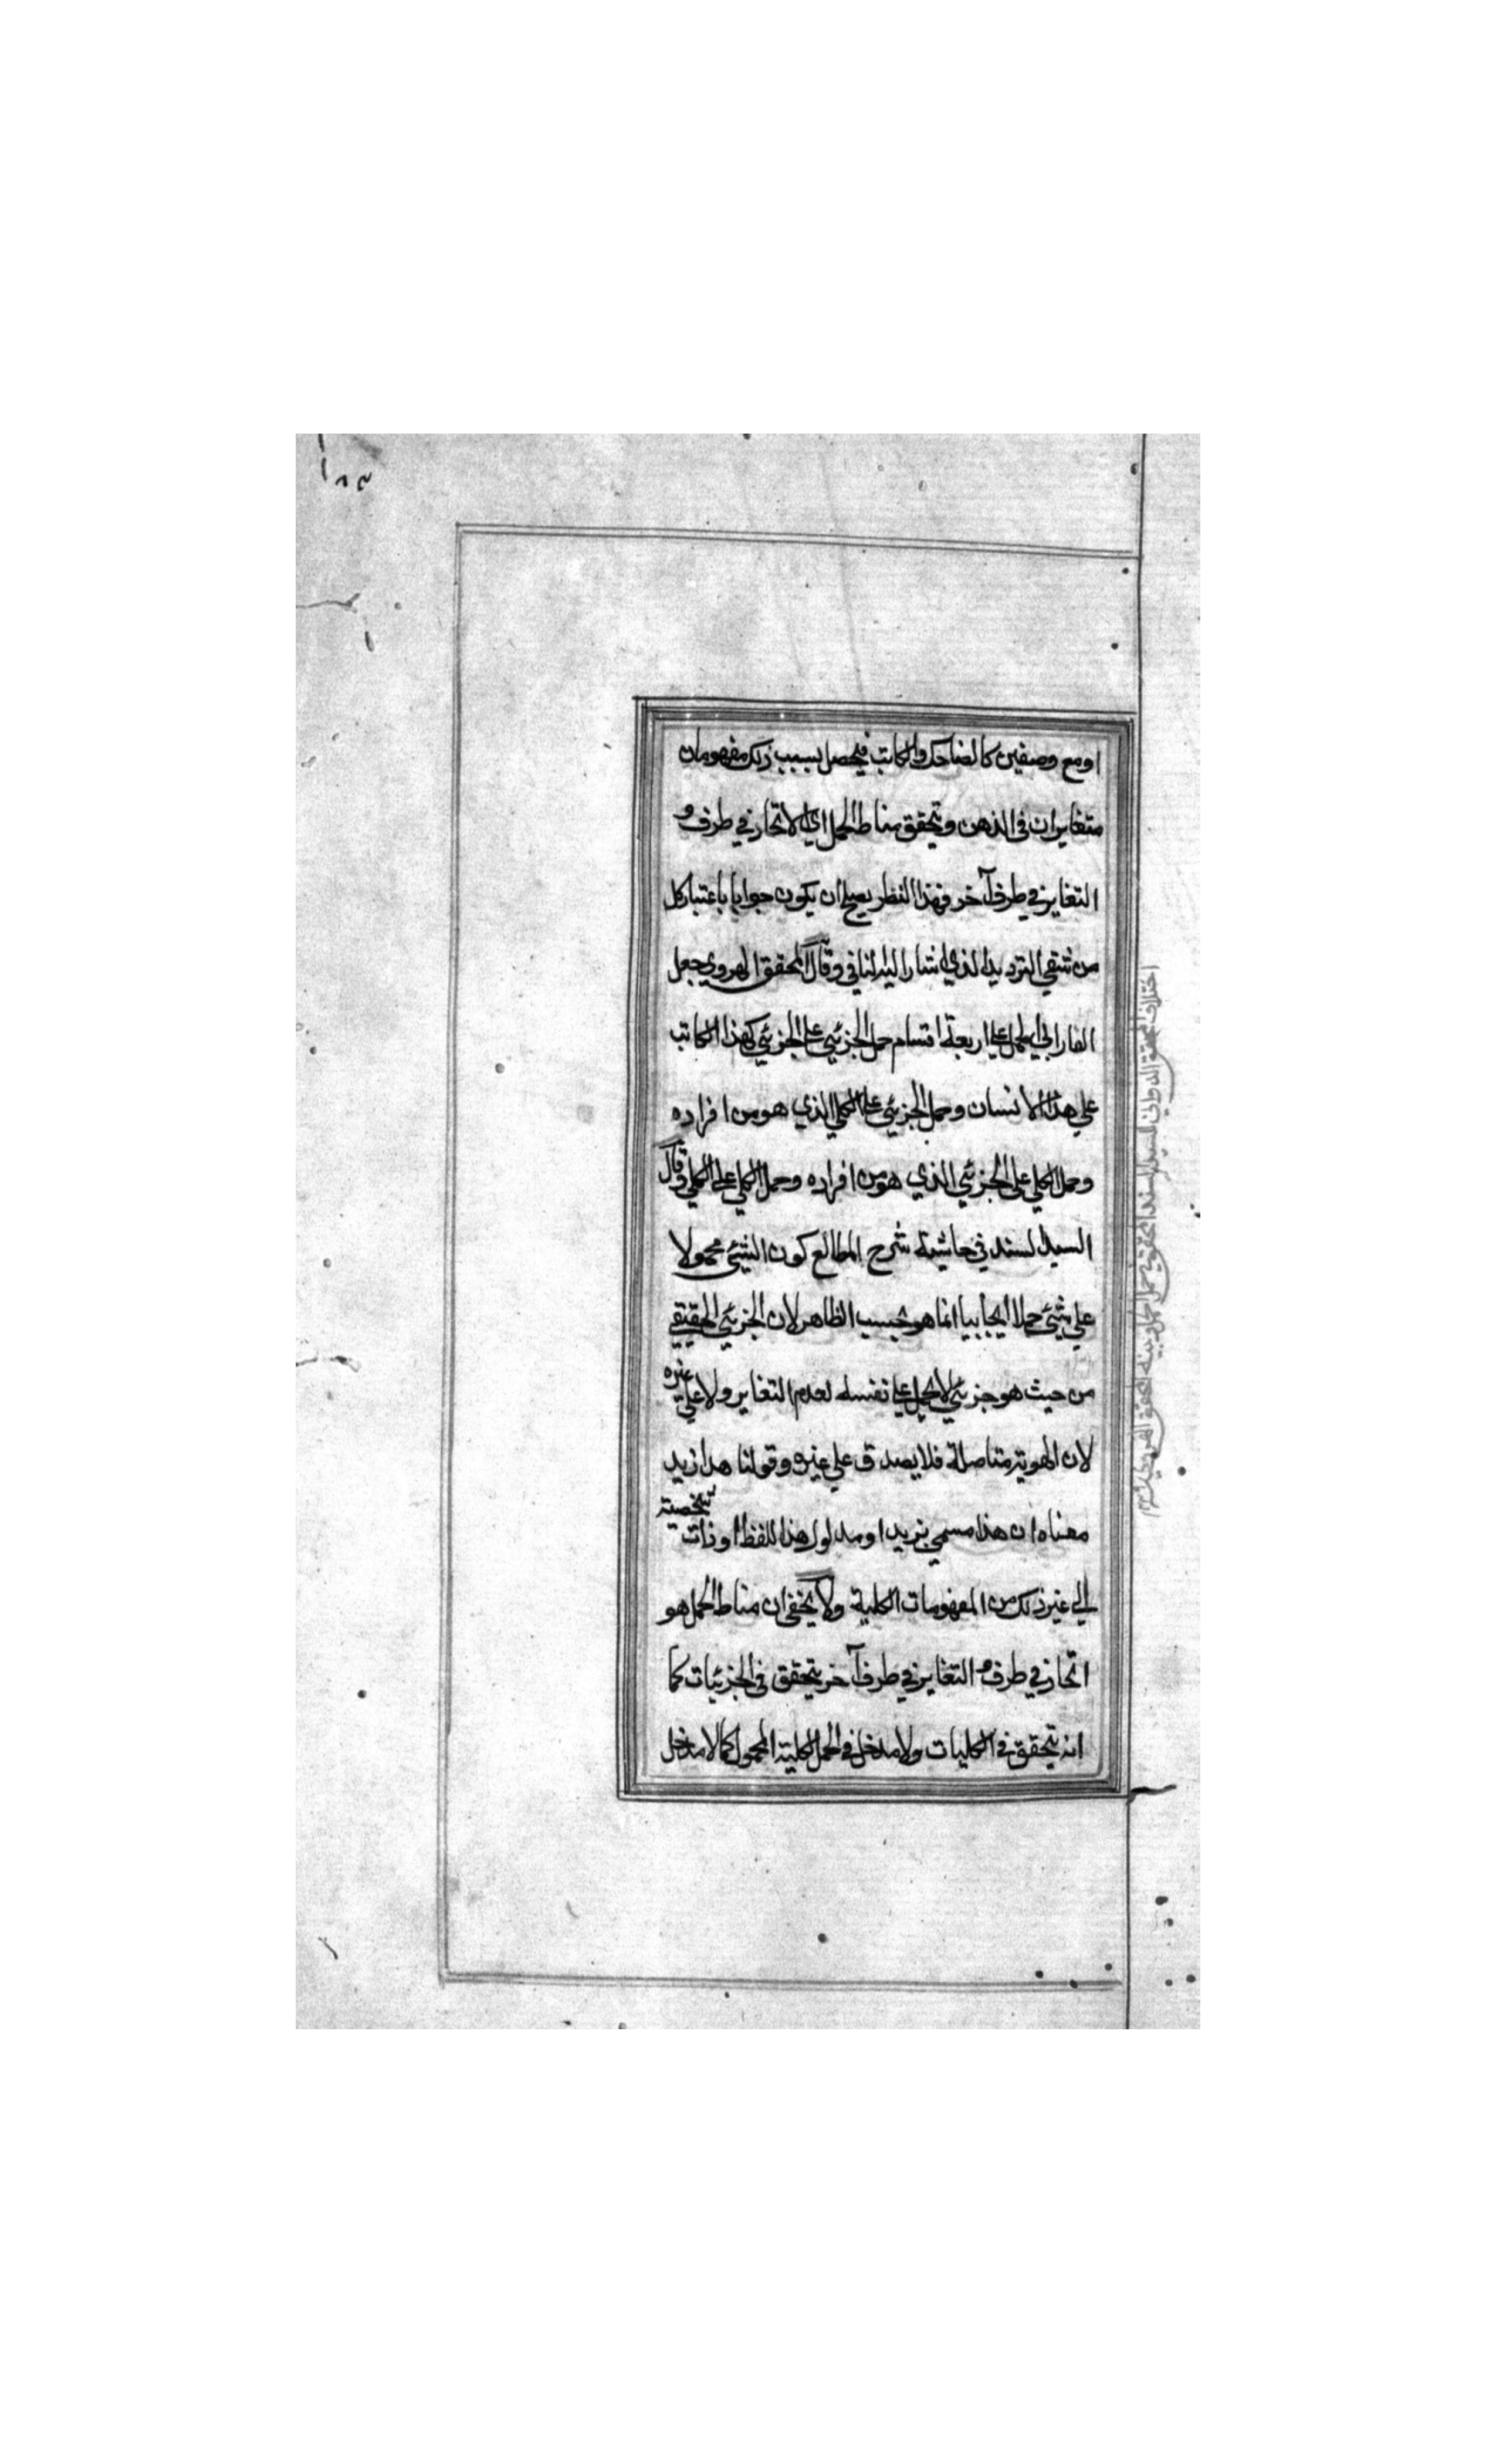 ١٨٣
او مع وصفين كالضاحك والكاتب فيحصل بسبب ذلك مفهومان
متغايران في الذهن ويتحقق مناط الحمل اي الاتحاد في ظرف و
التغاير في ظرف آخر فهذا النظر يصلح ان يكون جوابا باعتبار كل
من شقي الترديد الذي اشار اليه لنا في وقال المحقق الهروي جعل
الفارابي الحمل علي اربعة اقسام حمل الجزئي علي الجزئي كهذا الكاتب
علي هذا الانسان وحمل الجزئي علي الكلي الذي هو من افراده
وحمل الكلي علي الجزئي الذي هو من افراده وحمل الكلي علي الكلي وقال
السيد السند في حاشية شرح المطالع كون الشيئ محمولا
علي شيئ حملا ايجابيا انما هو بحسب الظاهر لان الجزئي الحقيقي
من حيث هو جزئي لا يحمل علي نفسه لعدم التغاير ولا علي غيره
لان الهوية متاصلة فلا يصدق علي غيره وقولنا هذا زيد
معناه ان هذا مسمي بزيد او مدلول هذا اللفظ او ذات تشخصية
الي غير ذلك من المفهومات الكلية ولا يخفي ان مناط الحمل هو
اتحاد في ظرف و التغاير في ظرف آخر يتحقق في الجزئيات كما
انه يتحقق في الكليات ولا مدخل في الحمل لكلية المحمول كما لا مدخل
اختلاف المحقق الدواني السيد السند المحقق في حمل